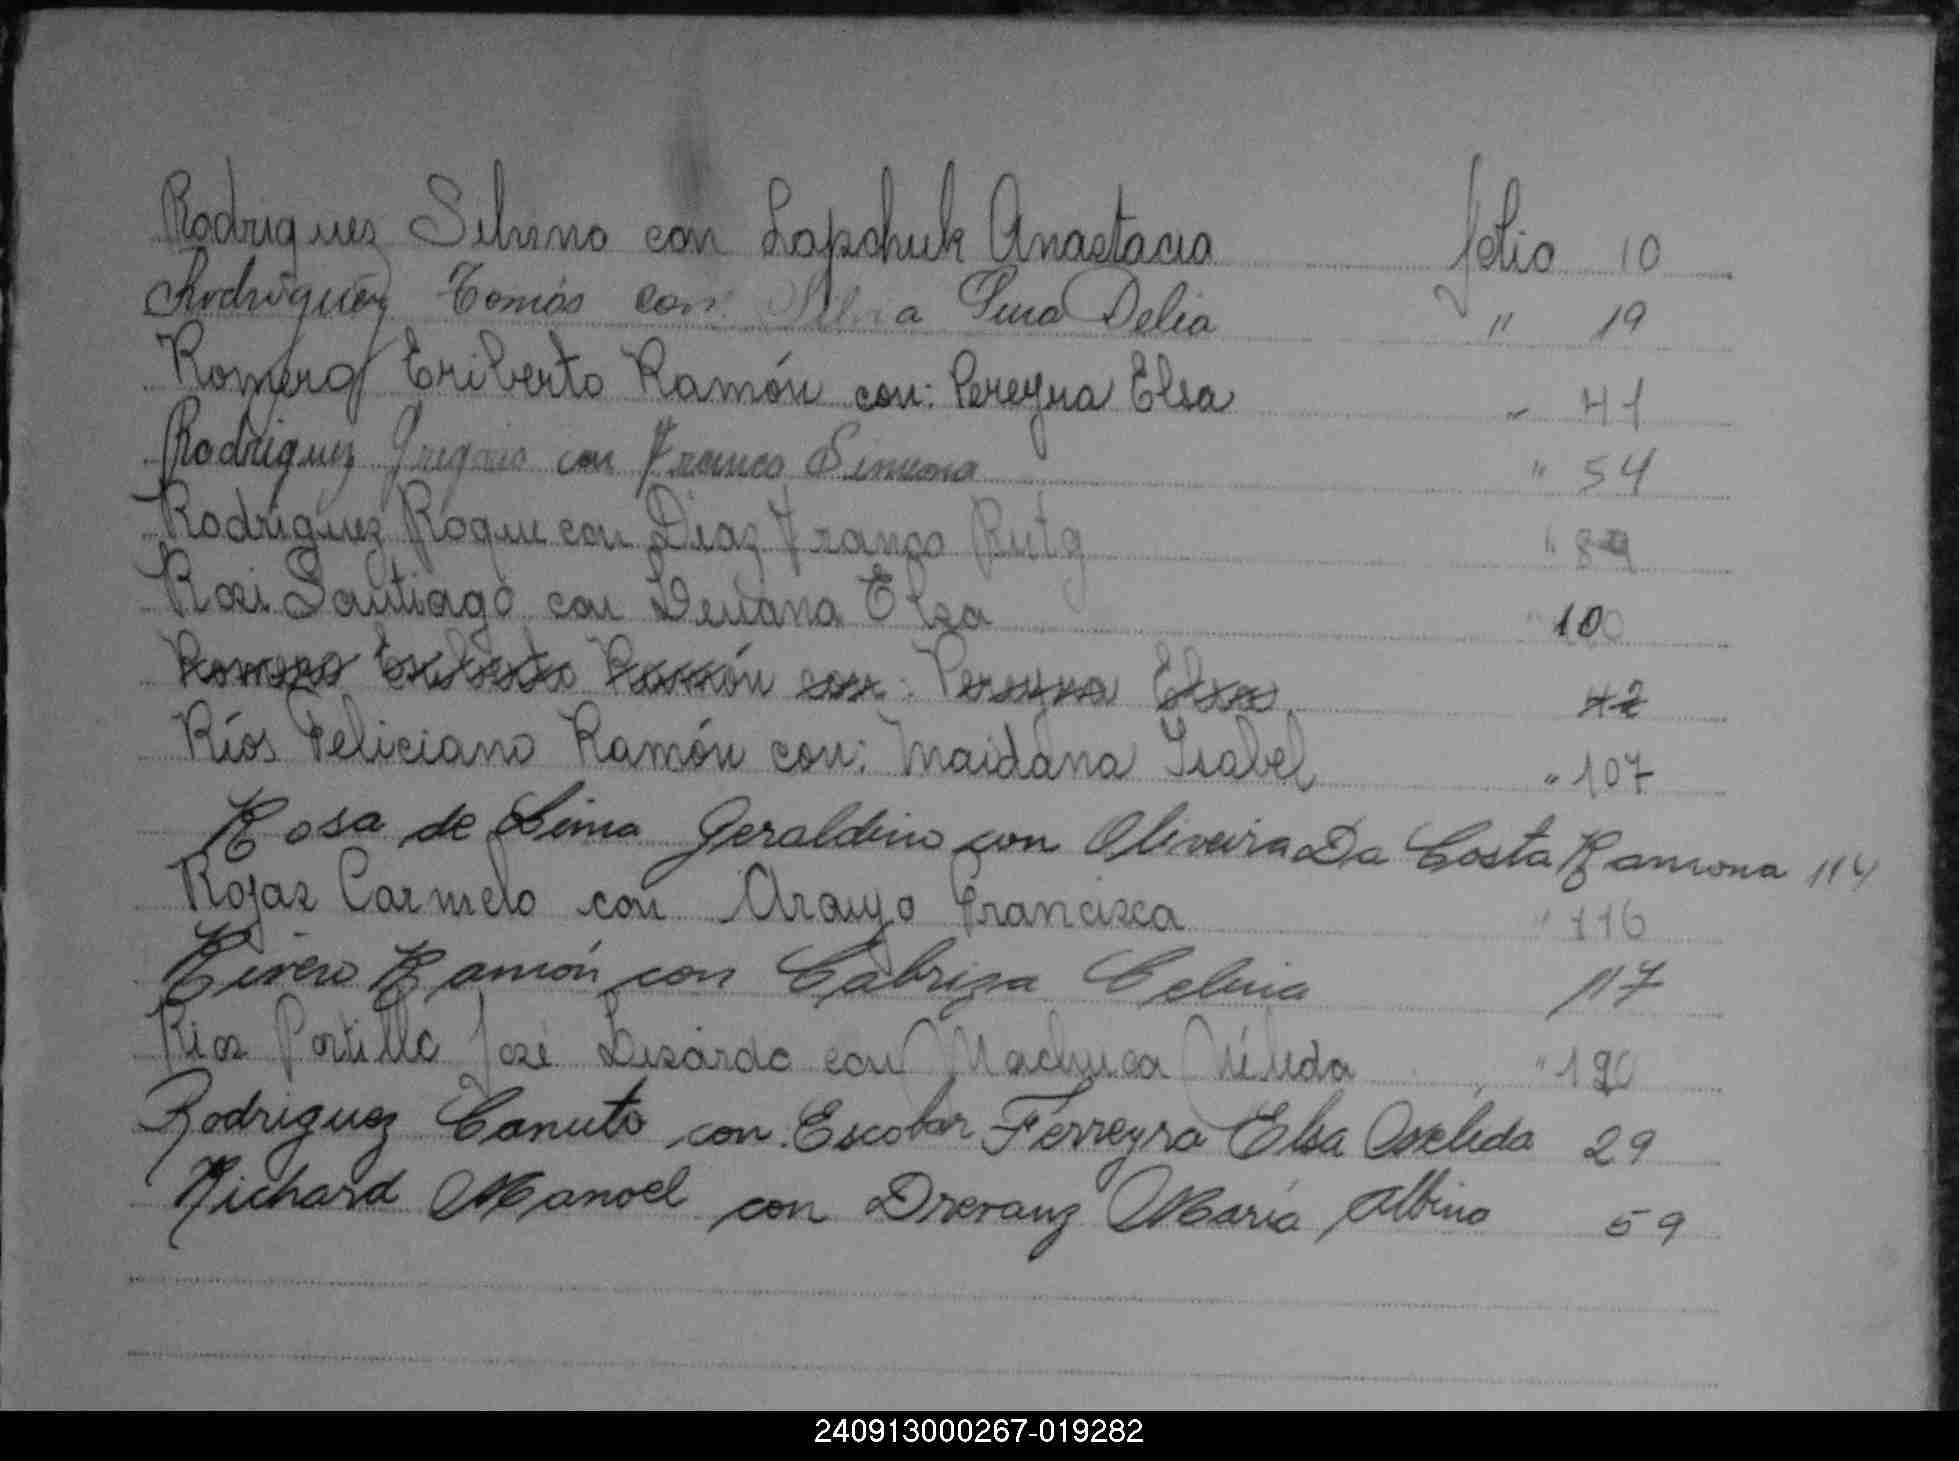 Rodriguez Silvino con Lapchuk Anastacia folio 10
Rodríguez Tomás con Silva Lina Delia " 19
Romero Eriberto Ramón con: Pereyra Elsa " 41
Rodriguez Gregorio con Franco Simeona " 54
Rodriguez Roque con Diaz Franco " 89
Rosi Santiago con Elsa " 100
Romero Eriberto Ramón con: Pereyra Elsa 42
Ríos Feliciano Ramón con: Maidana Isabel " 107
Rosa de Lima Geraldino con Oliveira Da Costa Ramona 114
Rojas Carmelo con Araujo Francisca " 116
Rivero Ramón con Cabriza Celina 117
Rios Portillo José Lisardo con Machuca Nélida " 120
Rodriguez Canuto con Escobar Ferreyra Elsa 29
Richard Manoel con Drevanz María Albina 59
240913000267-019282